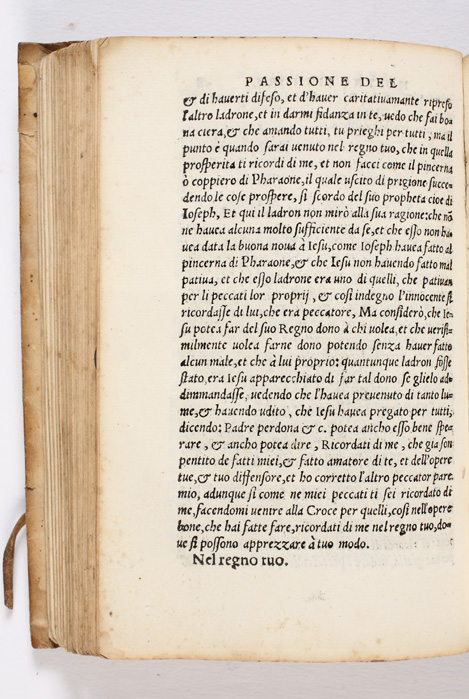 PASSIONE DEL
& di haverti difeso, et d'haver caritativamante ripreso
l'altro ladrone, et in darmi fidanza in te, vedo che fai bo
na ciera, & che amando tutti, tu prieghi per tutti, ma il
punto è quando sarai venuto nel regno tuo, che in quella
prosperità ti ricordi di me, et non facci come il pincerna
ò coppiero di Pharaone, il quale uscito di prigione succe
dendo le cose prospere, si scordo del suo propheta cioe di
Ioseph, Et qui il ladron non mirò alla sua ragione: che nõ
ne havea alcuna molto sufficiente da se, et che esso non ha
vea data la buona nova à Iesu, come Ioseph havea fatto al
pincerna di Pharaone, & che Iesu non havendo fatto mal
pativa, et che esso ladrone era uno di quelli, che pativan
per li peccati lor proprij, & cosi indegno l'innocente si
ricordasse di lui, che era peccatore, Ma considerò, che Ie-
su potea far del suo Regno dono à chi volea, et che verisi-
milmente volea farne dono potendo senza haver fatto
alcun male, et che à lui proprio: quantunque ladron fosse
stato, era Iesu apparecchiato di far tal dono se glielo ad-
dimmandasse, vedendo che l'havea prevenuto di tanto lu-
me, & havendo udito, che Iesu havea pregato per tutti,
dicendo: Padre perdona & c. potea ancho esso bene spe-
rare, & ancho potea dire, Ricordati di me, che gia son
pentito de fatti miei, & fatto amatore di te, et dell'opere
tue, & tuo diffensore, et ho corretto l'altro peccator pare
mio, adunque si come ne miei peccati ti sei ricordato di
me, facendomi venire alla Croce per quelli, cosi nell'opere
bone, che hai fatte fare, ricordati di me nel regno tuo, do-
ve si possono apprezzare à tuo modo.
Nel regno tuo.